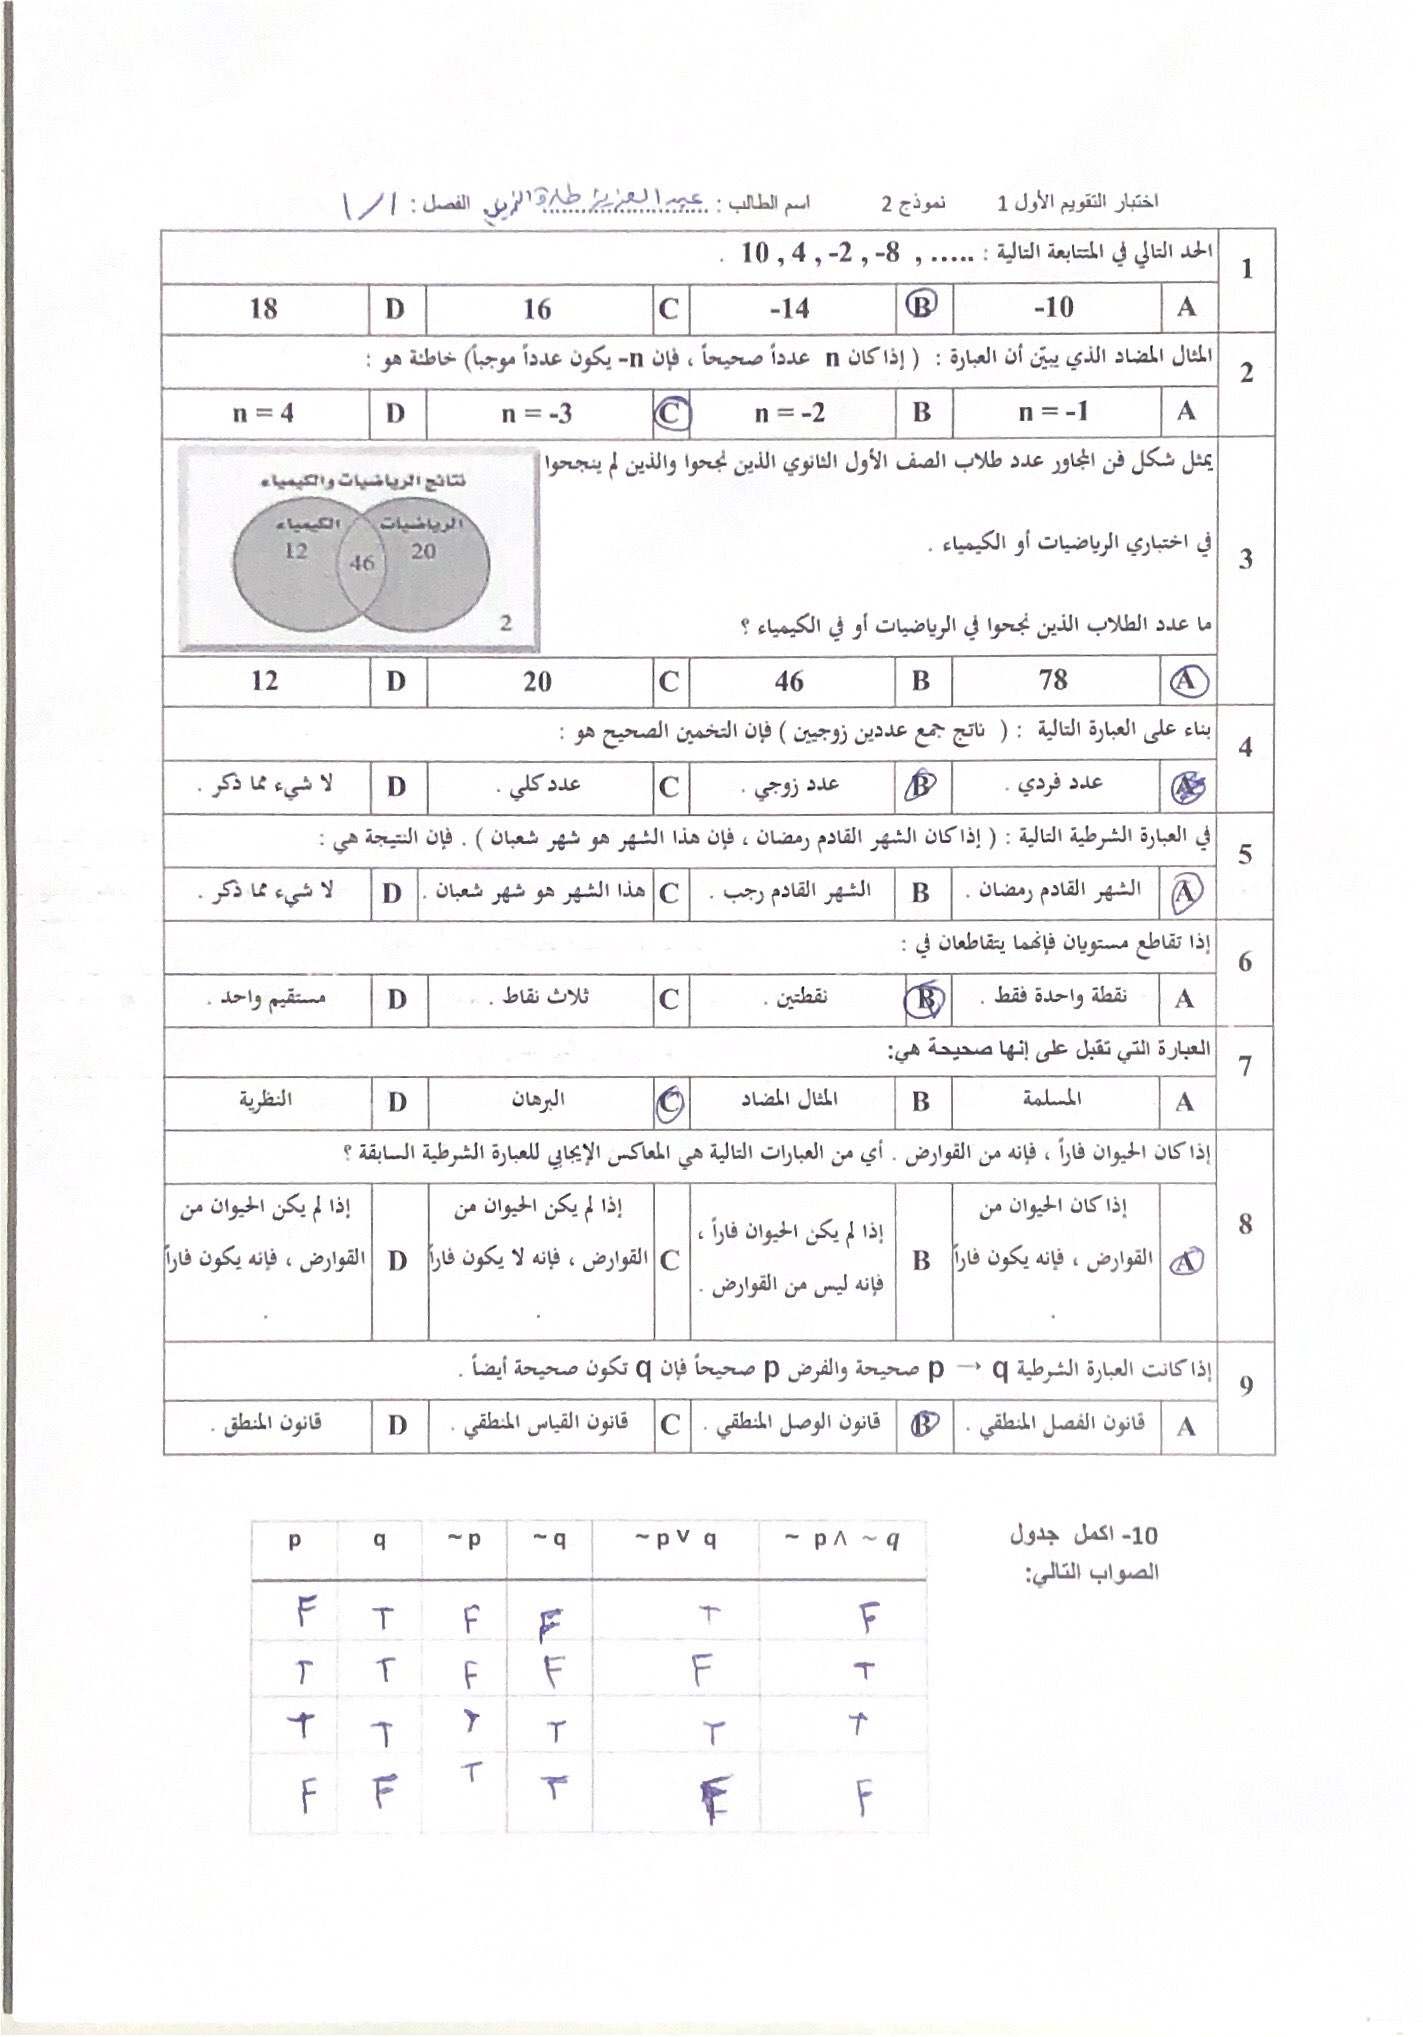 اختبار التقويم الأول 1 نموذج 2 اسم الطالب : عبد العزيز الفصل : ١/١
1 الحد التالي في المتتابعة التالية : 10 , 4 , -2 , -8 , ..... .
A -10 B -14 C 16 D 18
2 المثال المضاد الذي يبيّن أن العبارة : ( إذا كان n عدداً صحيحاً ، فإن n- يكون عدداً موجباً) خاطئة هو :
A n = -1 B n = -2 C n = -3 D n = 4
3 يمثل شكل فن المجاور عدد طلاب الصف الأول الثانوي الذين نجحوا والذين لم ينجحوا
في اختباري الرياضيات أو الكيمياء .
ما عدد الطلاب الذين نجحوا في الرياضيات أو في الكيمياء ؟
نتائج الرياضيات والكيمياء
الرياضيات الكيمياء
20 46 12
2
A 78 B 46 C 20 D 12
4 بناء على العبارة التالية : ( ناتج جمع عددين زوجيين ) فإن التخمين الصحيح هو :
A عدد فردي . B عدد زوجي . C عدد كلي . D لا شيء مما ذكر .
5 في العبارة الشرطية التالية : ( إذا كان الشهر القادم رمضان ، فإن هذا الشهر هو شهر شعبان ) . فإن النتيجة هي :
A الشهر القادم رمضان . B الشهر القادم رجب . C هذا الشهر هو شهر شعبان . D لا شيء مما ذكر .
6 إذا تقاطع مستويان فإنهما يتقاطعان في :
A نقطة واحدة فقط . B نقطتين . C ثلاث نقاط . D مستقيم واحد .
7 العبارة التي تقبل على إنها صحيحة هي:
A المسلمة B المثال المضاد C البرهان D النظرية
8 إذا كان الحيوان فاراً ، فإنه من القوارض . أي من العبارات التالية هي المعاكس الإيجابي للعبارة الشرطية السابقة ؟
A إذا كان الحيوان من القوارض ، فإنه يكون فاراً .
B إذا لم يكن الحيوان فاراً ، فإنه ليس من القوارض .
C إذا لم يكن الحيوان من القوارض ، فإنه لا يكون فاراً .
D إذا لم يكن الحيوان من القوارض ، فإنه يكون فاراً .
9 إذا كانت العبارة الشرطية p → q صحيحة والفرض p صحيحاً فإن q تكون صحيحة أيضاً .
A قانون الفصل المنطقي . B قانون الوصل المنطقي . C قانون القياس المنطقي . D قانون المنطق .
10- اكمل جدول
الصواب التالي:
p q ~p ~q ~p ∨ q ~ p ∧ ~ q
F T F F T F
T T F F F T
T T T T T T
F F T T F F